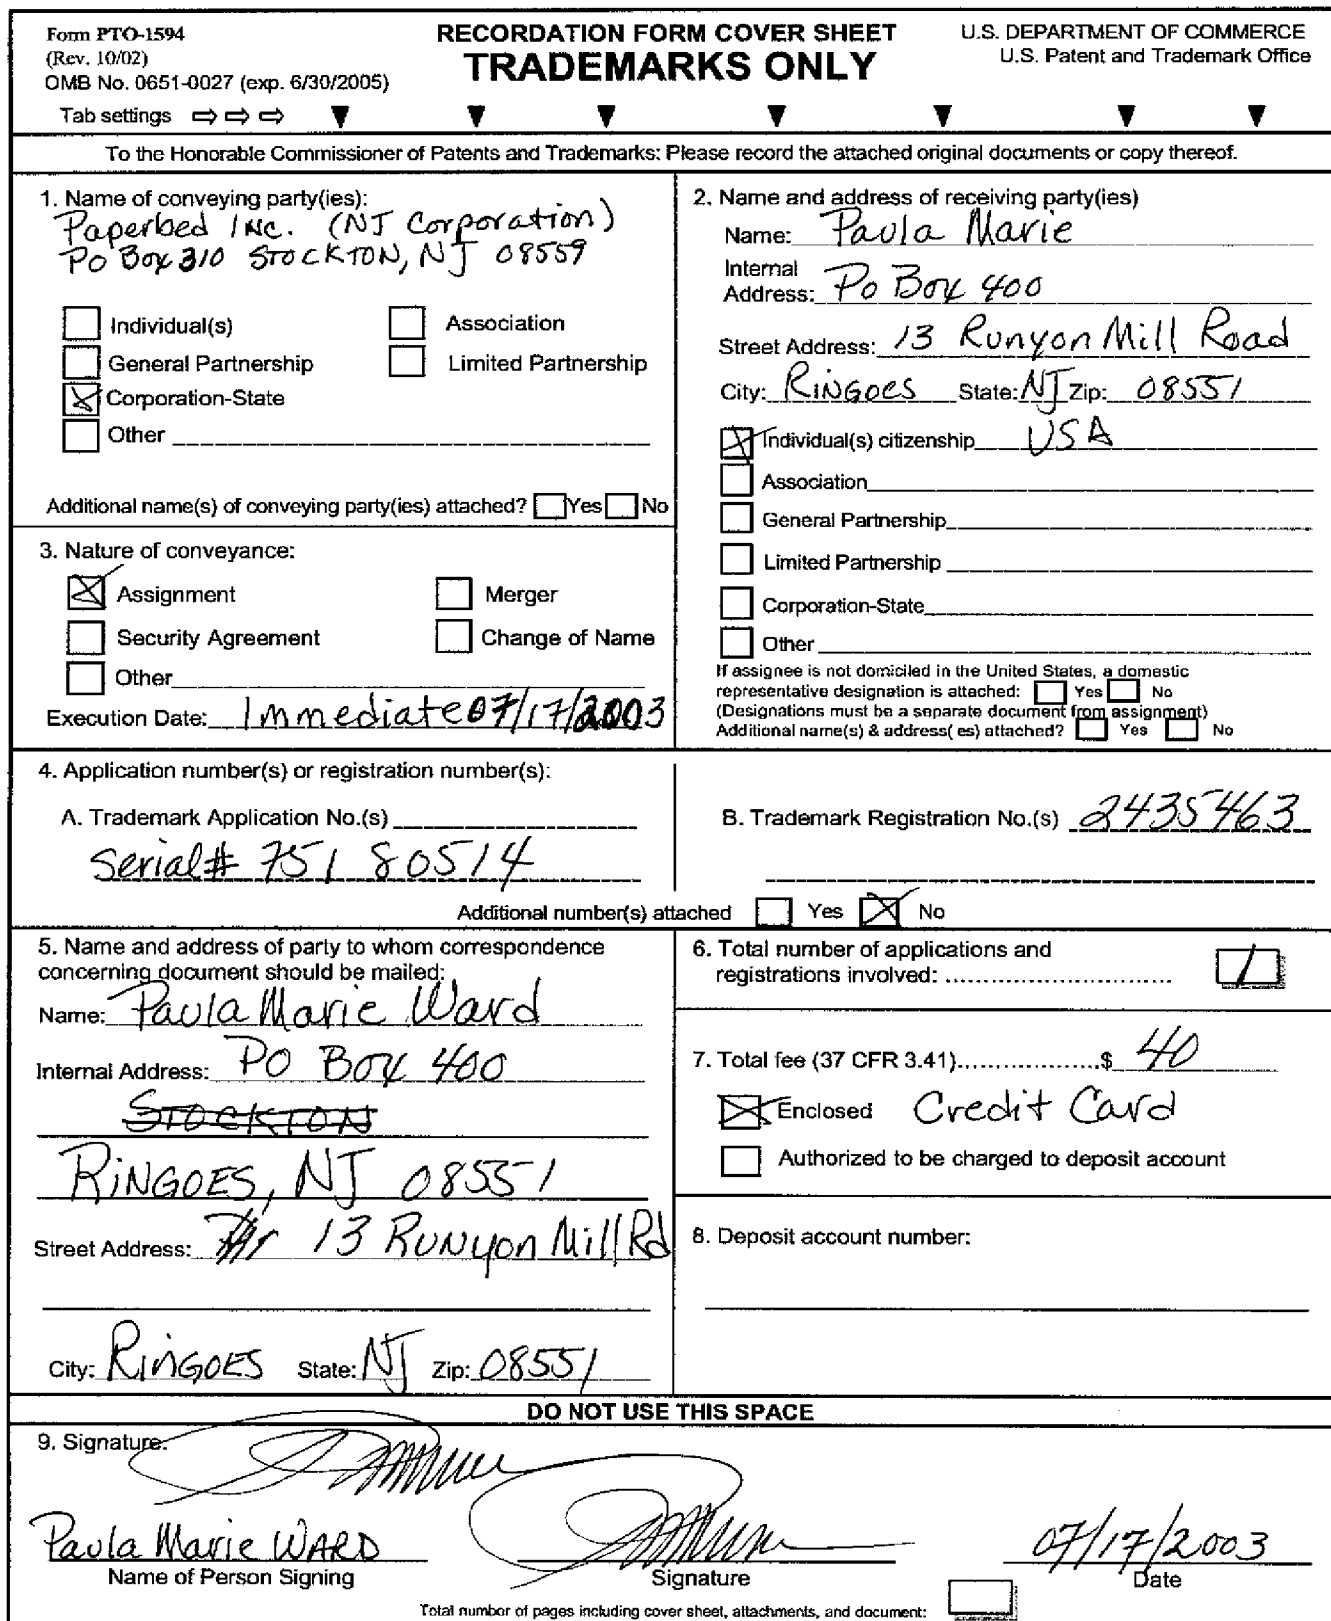 Form PTO-1594
(Rev. 10/02)
OMB No. 0651-0027 (exp. 6/30/2005)
RECORDATION FORM COVER SHEET
TRADEMARKS ONLY
U.S. DEPARTMENT OF COMMERCE
U.S. Patent and Trademark Office
Tab settings
To the Honorable Commissioner of Patents and Trademarks: Please record the attached original documents or copy thereof.
1. Name of conveying party(ies):
Paperbed INC. (NJ Corporation)
PO Box 310 STOCKTON, NJ 08559
Individual(s)
Association
General Partnership
Limited Partnership
Corporation-State
Other
Additional name(s) of conveying party(ies) attached? Yes No
2. Name and address of receiving party(ies)
Name: Paula Marie
Internal
Address: Po Box 400
Street Address: 13 Runyon Mill Road
City: RINGOES State: NJ Zip: 08551
Individual(s) citizenship USA
Association
General Partnership
Limited Partnership
Corporation-State
Other
If assignee is not domiciled in the United States, a domestic
representative designation is attached: Yes No
(Designations must be a separate document from assignment)
Additional name(s) & address( es) attached? Yes No
3. Nature of conveyance:
Assignment
Merger
Security Agreement
Change of Name
Other
Execution Date: Immediate 07/17/2003
4. Application number(s) or registration number(s):
A. Trademark Application No.(s)
Serial# 751 80514
B. Trademark Registration No.(s) 2435463
Additional number(s) attached Yes No
5. Name and address of party to whom correspondence
concerning document should be mailed:
Name: Paula Marie Ward
Internal Address: PO Box 400
STOCKTON
RINGOES, NJ 08551
Street Address: 13 Runyon Mill Rd
City: RINGOES State: NJ Zip: 08551
6. Total number of applications and
registrations involved: ............................ 1
7. Total fee (37 CFR 3.41)....................$ 40
Enclosed Credit Card
Authorized to be charged to deposit account
8. Deposit account number:
DO NOT USE THIS SPACE
9. Signature.
Paula Marie WARD
07/17/2003
Name of Person Signing
Signature
Date
Total number of pages including cover sheet, attachments, and document: